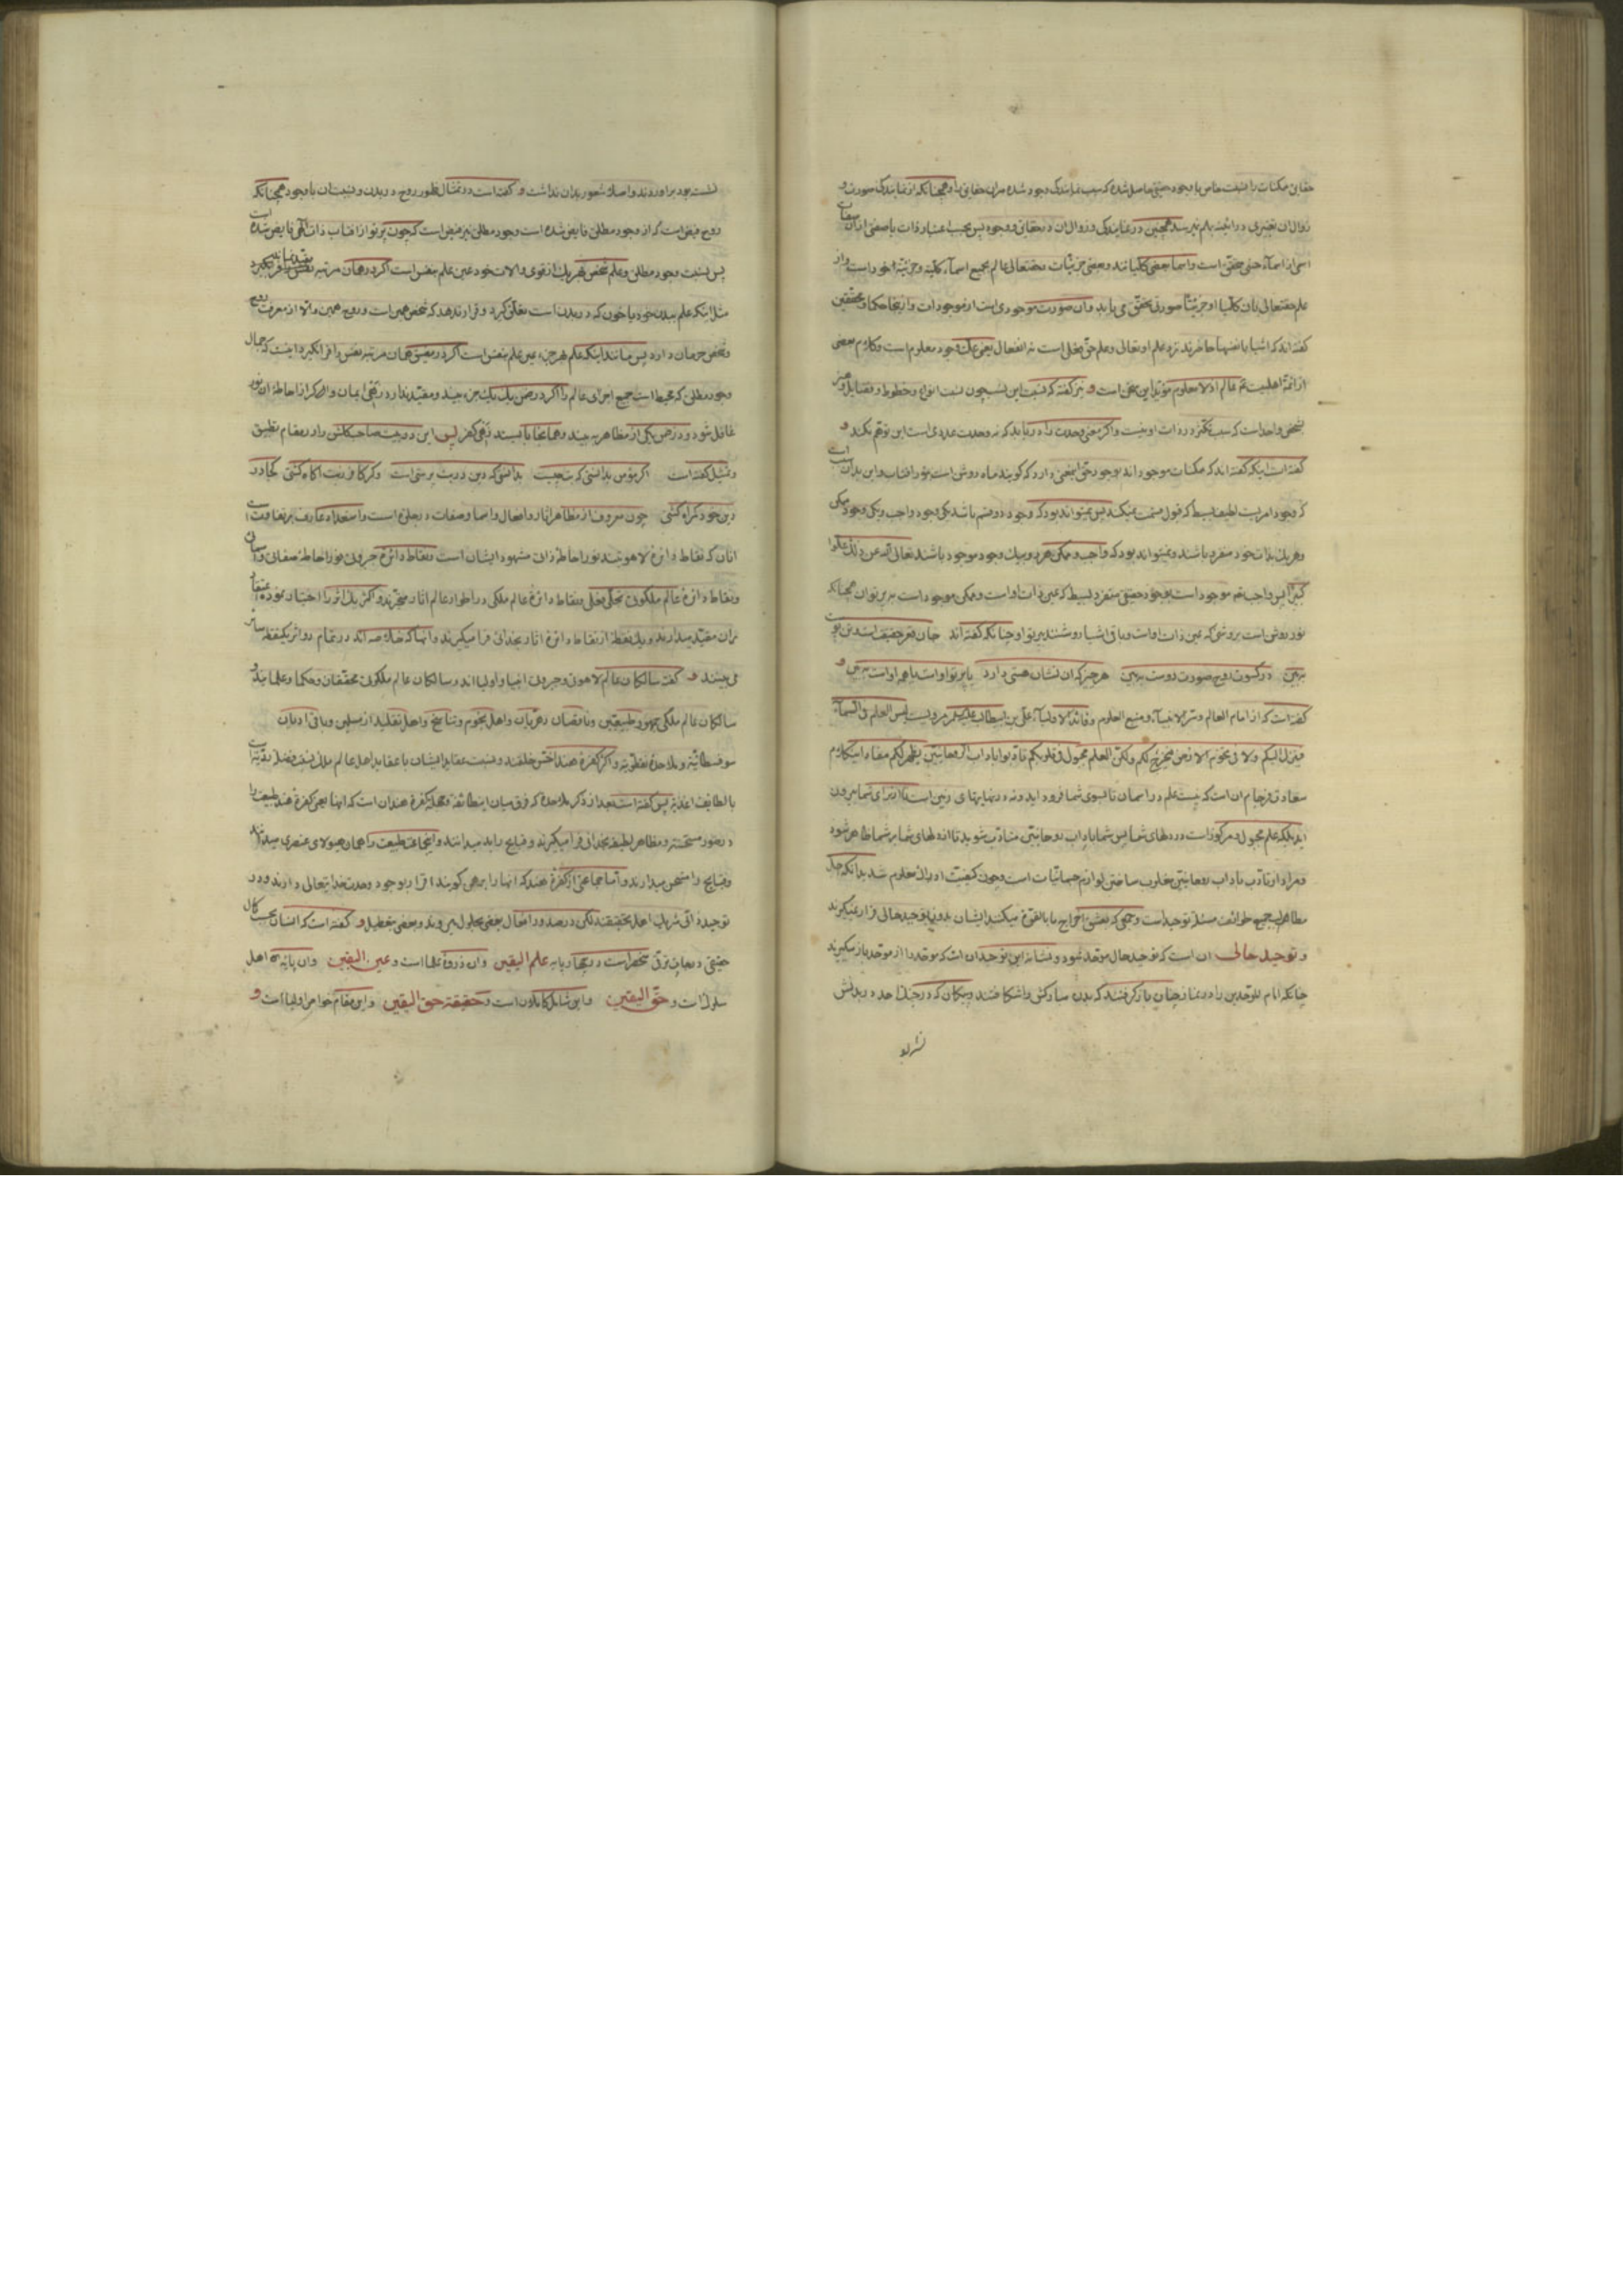 حقایق ممکنات را نسبت خاص با وجود حقیقی حاصل شده که سبب نمایندگی وجود شده مران حقایق را و همچنانکه از نمایندگی صورت و
زوال ان تغییری در اینه بهم نمیرسد همچنین در نمایندگی و زوال ان در حقایق و وجود پس بحسب اعتبار ذات با صفتی از صفات
اسمی از اسماء حسنی محقق است و اسما بعضی کلیاتند و بعضی جزئیات و حقتعالی عالم بجمیع اسماء کلیه و جزئیه خود است و از
علم حقتعالی بان کلیا او جزئیا صورتی تحقق می یابد و ان صورت موجودی است از موجودات و از اینجا حکما و محققین
گفته اند که اشیا بانفسها حاضرند نزد علم او تعالی و علم حق فعلی است نه انفعالی یعنی علت وجود معلوم است و کلام بعضی
از ائمه اهلبیت عم عالم اذ لا معلوم مؤید این سخن است و نیز گفته که نسبت این نسب چون نسبت انواع و خطوط و فضایل و هنر
بشخص واحد است که سبب تکثر در ذات او نیست و اگر معنی وحدت را دریابد که نه وحدت عددی است این توهم نکند و
گفته است اینکه گفته اند که ممکنات موجود اند بوجود حق این معنی دارد که گویند ماه روشن است بنور افتاب و این بدان سبب است
که وجود امریست لطیف بسیط که قبول قسمت نمیکند پس نمیتواند بود که وجود دو قسم باشد یکی وجود واجب و یکی وجود ممکن
و هر یک بذات خود منفرد باشند و نمیتواند بود که واجب و ممکن هر دو بیک وجود موجود باشند تعالی الله عن ذلک علوا
کبیرا پس واجب تعم موجود است بوجود حقیقی منفرد بسیط که عین ذات اوست و ممکن موجود است به پرتو ان همچنانکه
نور روشن است بروشنی که عین ذات اوست و باقی اشیا روشنند بپرتو او چنانکه گفته اند جان مغز حقیقت است تن پوست
ببین در کسوت روح صورت دوست ببین هر چیز که ان نشان هستی دارد یا پرتو اوست یا همه اوست ببین و
گفته است که از امام العالم و سر الانبیاء و منبع العلوم و قائد الاولیاء علی بن ابیطالب علیه السلام مرویست لیس العلم فی السماء
فینزل الیکم ولا فی تخوم الارض فیخرج لکم ولکن العلم مجبول فی قلوبکم تادبوا باداب الروحانیین یظهر لکم مفاد این کلام
سعادت فرجام ان است که نیست علم در اسمان تا بسوی شما فرود اید و نه در نهایتهای زمین است تا از برای شما بیرون
اید بلکه علم مجبول و مرکوز است در دلهای شما پس شما باداب روحانیین متادب شوید تا از دلهای شما بر شما ظاهر شود
و مراد از تادب باداب روحانیین مغلوب ساختن لوازم جسمانیات است و چون کیفیت ادراک معلوم شد بدانکه جل
مطالب جمیع طوایف مسئله توحید است و جمعی که نقش
و توحید حالی ان است که توحید حال موحد شود و نشانه این توحید ان است که موحد را از موحد باز میگیرند
چنانکه امام الموحدین را در نماز چنان باز گرفتند که بدن مبارکش واشکافتند و پیکان که در جنگ احد در بدنش
نشسته بود
نشسته بود براوردند و اصلا شعور بدان نداشت و گفته است در تمثال ظهور روح در بدن و نسبت ان با وجود همچنانکه
روح فیضی است که از وجود مطلق فایض شده است وجود مطلق نیز فیضی است که چون پرتو از افتاب ذات الهی فایض شده است
پس نسبت وجود مطلق و علم شخص بهر یک از قوی و الات خود عین علم بنفس است اگر در همان مرتبه مقید نماند
مثل اینکه علم ببدن خود یا خون که در بدن است تعلق گیرد و قرار ندهد که شخص همین است و روح همین والا از معرفت روح
و شخص حرمان دارد پس مانند اینکه علم بهر جزء عین علم بنفس است اگر در معین همان مرتبه نفس را فرانگیرد اینست که جمال
وجود مطلق که محیط است جمیع اجزای عالم را اگر در ضمن یک یک جزء بیند و مقید ندارد زهی ایمان و اگر از احاطه ان نور
غافل شود و در ضمن یکی از مظاهر به بیند و همانجا باز بیستد زهی کفر پس این دو بیت صاحب گلشن را در مقام تطبیق
و تمثیل گفته است اگر مؤمن بدانستی که بت چیست بدانستی که دین در بت پرستی است وگر کافر ز بت اگاه گشتی کجا در
دین خود گمراه گشتی چون معروف از مظاهر اثار و افعال و اسما و صفات در جلوه است و استعداد عارف بر تفاوت است
انان که نقاط دائره لاهوتند نور احاطه ذات مشهود ایشان است و نقاط دائره جبروت نور احاطه صفات و اسماء
و نقاط دائره عالم ملکوت تجلی فعلی و نقاط دائره عالم ملکی در اطوار عالم اثار متحیرند و اکثر یک اثر را اختیار نموده اعتقاد
بران مقید میدارند و یک نقطه از نقاط دائره اثار بخدائی فرا میگیرند و انها که خلاصه اند در تمام دوائر یکنقطه ساریه
می بینند و گفت سالکان عالم لاهوت و جبروت انبیا و اولیا اند و سالکان عالم ملکوت محققان و حکما و علما بالله و
سالکان عالم ملکی جمهور طبیعیین و ناقصان دهریان و اهل نجوم و تناسخ و اهل تقلید از مسلمین و باقی ادیان
سوفسطائیه و ملاحده نقطویه و اکثر کفره هند اخس خلقند و نسبت عقاید ایشان با عقاید اهل عالم
با لطایف اغذیه پس گفته است بعد از ذکر ملاحده که فرق میان اینطایفه و جمله کفره هند ان است که انها یعنی کفره هند طبیعت را
در صور مستحسنه و مظاهر لطیفه بخدائی فرا میگیرند و قبایح را بد میدانند و اینجماعت طبیعت را همان هیولای عنصری میدانند
و قبایح را مستحسن میدارند و اما جماعتی از کفره هند که انها را برهمن گویند اقرار بوجود وحدت خدایتعالی دارند و در
توحید ذاتی شریک اهل تحقیقند لکن در صدور افعال بعضی بحلول میروند و بعضی بتعطیل و گفته است که انسان بحسب کمال
حقیقی در معارج ترقی منحصر است در چهار پایه علم الیقین وان ذروه علما است و عین الیقین وان پایه اهل
سلوک است و حق الیقین و این شامل کاملان است و حقیقة حق الیقین و این مقام خواص اولیا است و